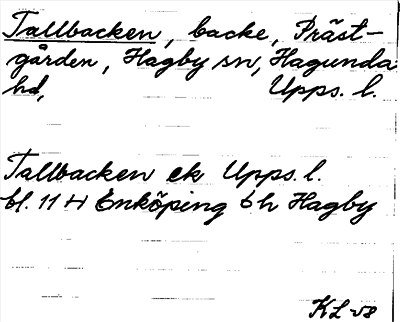 Tallbacken, backe, Präst-
gården, Hagby sn, Hagunda
hd, Upps. l.
Tallbacken ek Upps. l.
bl. 11 H Enköping 6 h Hagby
KL -58